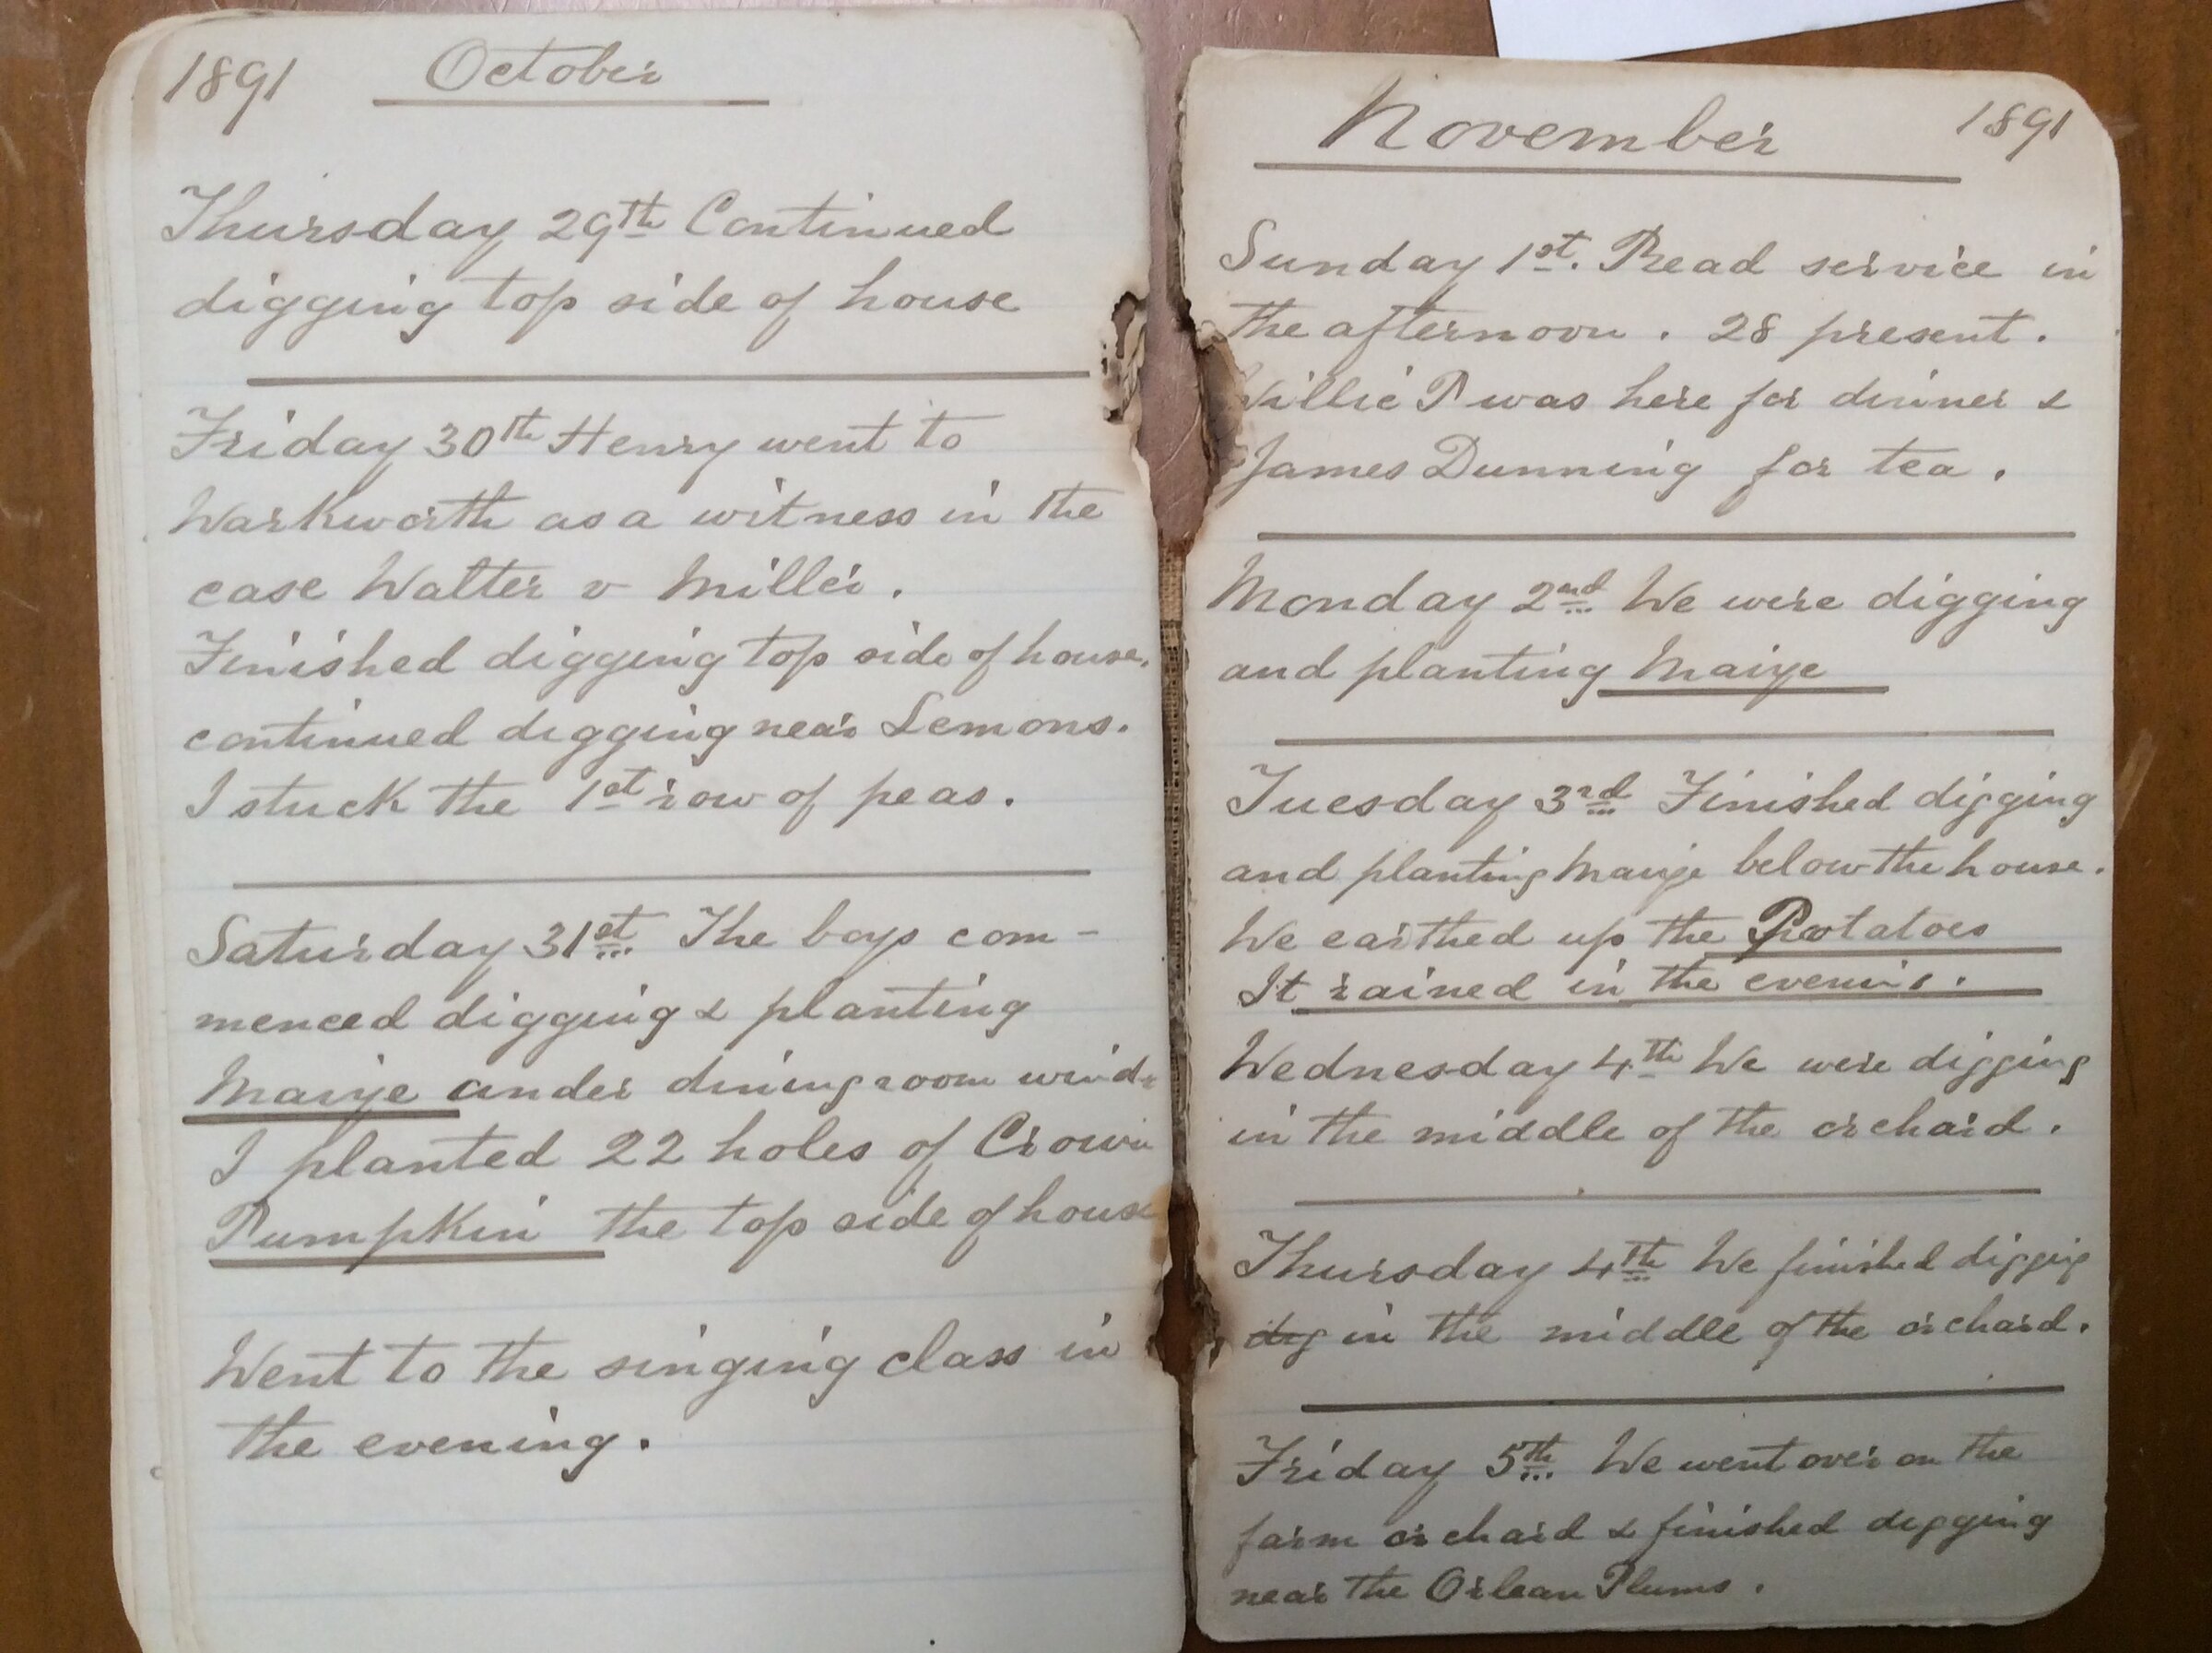 1891 October
Thursday 29th Continued
digging top side of house
Friday 30th Henry went to
Warkworth as a witness in the
case Walter v Miller.
Finished digging top side of house.
continued digging near Lemons.
I stuck the 1st row of peas.
Saturday 31st. The boys com-
menced digging & planting
Maize under dining room wind-
I planted 22 holes of Crown
Pumpkin the top side of house
Went to the singing class in
the evening.
November 1891
Sunday 1st. Read service in
the afternoon. 28 present.
Willie P was here for dinner &
James Dunning for tea.
Monday 2nd We were digging
and planting Maize
Tuesday 3rd Finished digging
and planting Maize below the house.
We earthed up the Potatoes
It rained in the evening.
Wednesday 4th We were digging
in the middle of the orchard.
Thursday 4th We finished digging
dig in the middle of the orchard.
Friday 5th. We went over on the
farm orchard & finished digging
near the Orlean Plums.